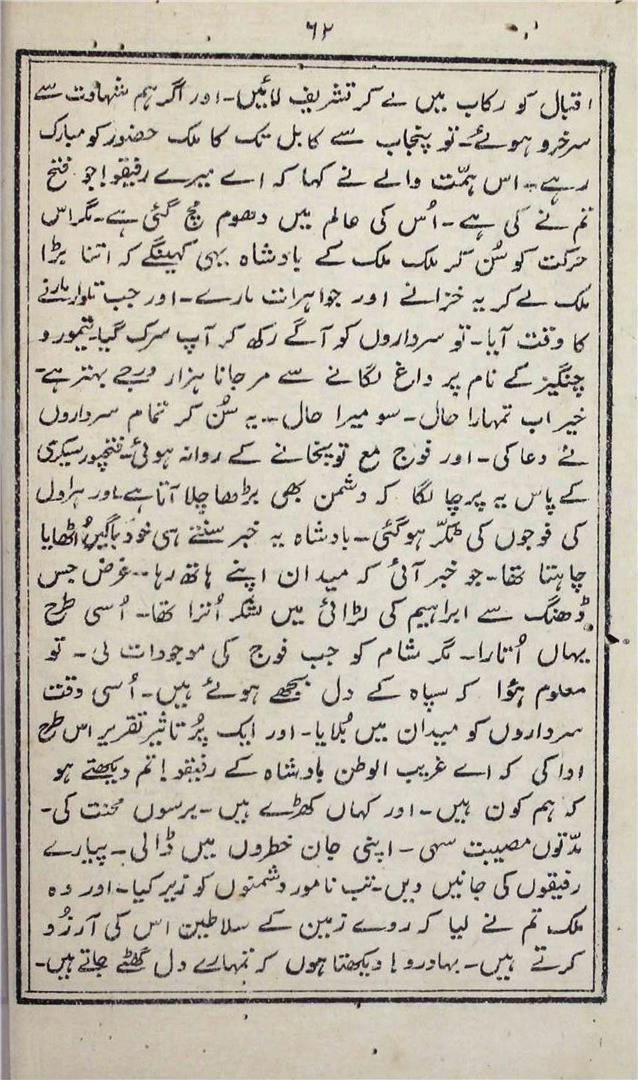 ۶۲
اقبال کو رکاب میں لے کر تشریف لائیں۔ اور اگر ہم شہادت سے
سرخرو ہوئے۔ تو پنجاب سے کابل تک کا ملک حضور کو مبارک
رہے۔ اس ہمّت والے نے کہا کہ اے میرے رفیقو! جو فتح
تم نے کی ہے۔ اُس کی عالم میں دھوم مچ گئی ہے۔ مگر اس
حرکت کو سُن کر ملک ملک کے بادشاہ یہی کہینگے کہ اتنا بڑا
ملک لے کر یہ خزانے اور جواہرات مارے۔ اور جب تلوار مارنے
کا وقت آیا۔ تو سرداروں کو آگے رکھ کر آپ سرک گیا۔ تیمور و
چنگیز کے نام پر داغ لگانے سے مر جانا ہزار درجے بہتر ہے۔
خیر اب تمہارا حال۔ سو میرا حال۔ یہ سُن کر تمام سرداروں
نے دعا کی۔ اور فوج مع توپخانے کے روانہ ہوئی۔ فتحپور سیکری
کے پاس یہ پرچا لگا کہ دشمن بھی بڑھا چلا آتا ہے اور ہراول
کی فوجوں کی ٹکّر ہو گئی۔ بادشاہ یہ خبر سنتے ہی خود باگیں اُٹھایا
چاہتا تھا۔ جو خبر آئی کہ میدان اپنے ہاتھ رہا۔ غرض جس
ڈھنگ سے ابراہیم کی لڑائی میں لشکر اُترا تھا۔ اُسی طرح
یہاں اُتارا۔ مگر شام کو جب فوج کی موجودات لی۔ تو
معلوم ہؤا کہ سپاہ کے دل بجھے ہوئے ہیں۔ اُسی وقت
سرداروں کو میدان میں بُلایا۔ اور ایک پُر تاثیر تقریر اس طرح
ادا کی کہ اے غریب الوطن بادشاہ کے رفیقو! تم دیکھتے ہو
کہ ہم کون ہیں۔ اور کہاں کھڑے ہیں۔ برسوں محنت کی۔
مدّتوں مصیبت سہی۔ اپنی جان خطروں میں ڈالی۔ پیارے
رفیقوں کی جانیں دیں۔ تب نامور دشمنوں کو زیر کیا۔ اور وہ
ملک تم نے لیا کہ روے زمین کے سلاطین اس کی آرزُو
کرتے ہیں۔ بہادرو! دیکھتا ہوں کہ تمہارے دل گھٹے جاتے ہیں۔